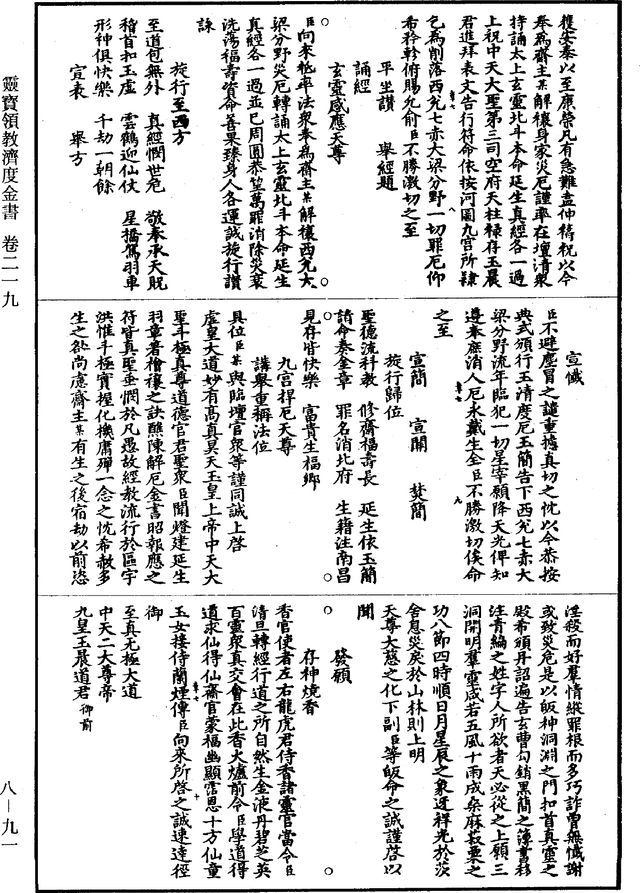 獲安泰以至康榮凡有急難盡仰禱祝以今
奉為齋主某解禳身家災厄謹率在壇清衆
持誦太上玄靈北斗本命延生真經各一過
上祝中天大聖第三司空府天柱祿存玉晨
君進拜表文告行符命依按河圖九宮所隸
乞為削落西兊七赤大梁分野一切罪厄仰
希矜軫俯賜允俞臣不勝激切之至
平坐讃　舉經題
誦經
玄靈感應天尊
臣向來秪率法衆奉為齋主某解禳西兊大
梁分野災厄轉誦太上玄靈北斗本命延生
真經各一過並已周圓恭望萬罪消除災衰
洗蕩福壽資命善果臻身人各運誠旋行讃
詠
旋行至西方
至道包無外　真經憫世危　敬奉承天貺
稽首扣玉虛　雲鶴迎仙仗　星橋駕羽車
形神俱快樂　千劫一朝餘
宣表　舉方
宣懺
臣不避塵冒之譴重攄真切之忱以今恭按
典式頒行玉清度厄玉簡告下西兊七赤大
梁分野流年臨犯一切星宰願降天光俾知
遵奉應消人厄永藏生全臣不勝激切俟命
之至
宣簡　宣關　焚簡
旋行歸位
聖德流科教　修齋福壽長　延生依玉簡
請命奏金章　罪名消北府　生籍注南昌
見存皆快樂　富貴生福鄉
九宮捍厄天尊
講舉重稱法位
具位臣某與臨壇官衆等謹同誠上啓
虛皇大道妙有高真昊天玉皇上帝中天大
聖斗極真尊道德官君聖衆臣聞燈建延生
羽章著禬禳之訣醮陳解厄金書昭報應之
符皆真聖垂憫於凡愚故經教流行於區宇
洪惟斗極實握化機庸殫一念之忱希赦多
生之咎尚慮齋主某有生之後宿劫以前恣
淫殺而好羣情縱罪根而多巧詐曾無懺謝
或致災危是以皈神洞淵之門扣首真靈之
殿希頒丹詔遍告玄曹勾銷黑簡之簿書移
注青編之姓字人所欲者天必從之上願三
洞開明羣靈咸若五風十雨成桑麻菽粟之
功八節四時順日月星辰之象迓祥光於茨
舍息災戾於山林則上明
天尊大慈之化下副臣等皈命之誠謹啓以
聞
發願
存神燒香
香官使者左右龍虎君侍香諸靈官當令臣
清旦轉經行道之所自然生金液丹碧芝英
百靈衆真交會在此香火爐前令臣學道得
道求仙得仙齋官蒙福幽顯霑恩十方仙童
玉女接侍蘭煙傳臣向來所啓之誠速達徑
御
至真無極大道
中天二大尊帝
九皇玉晨道君御前
靈寶領教濟度金書　卷二一九
八—九一